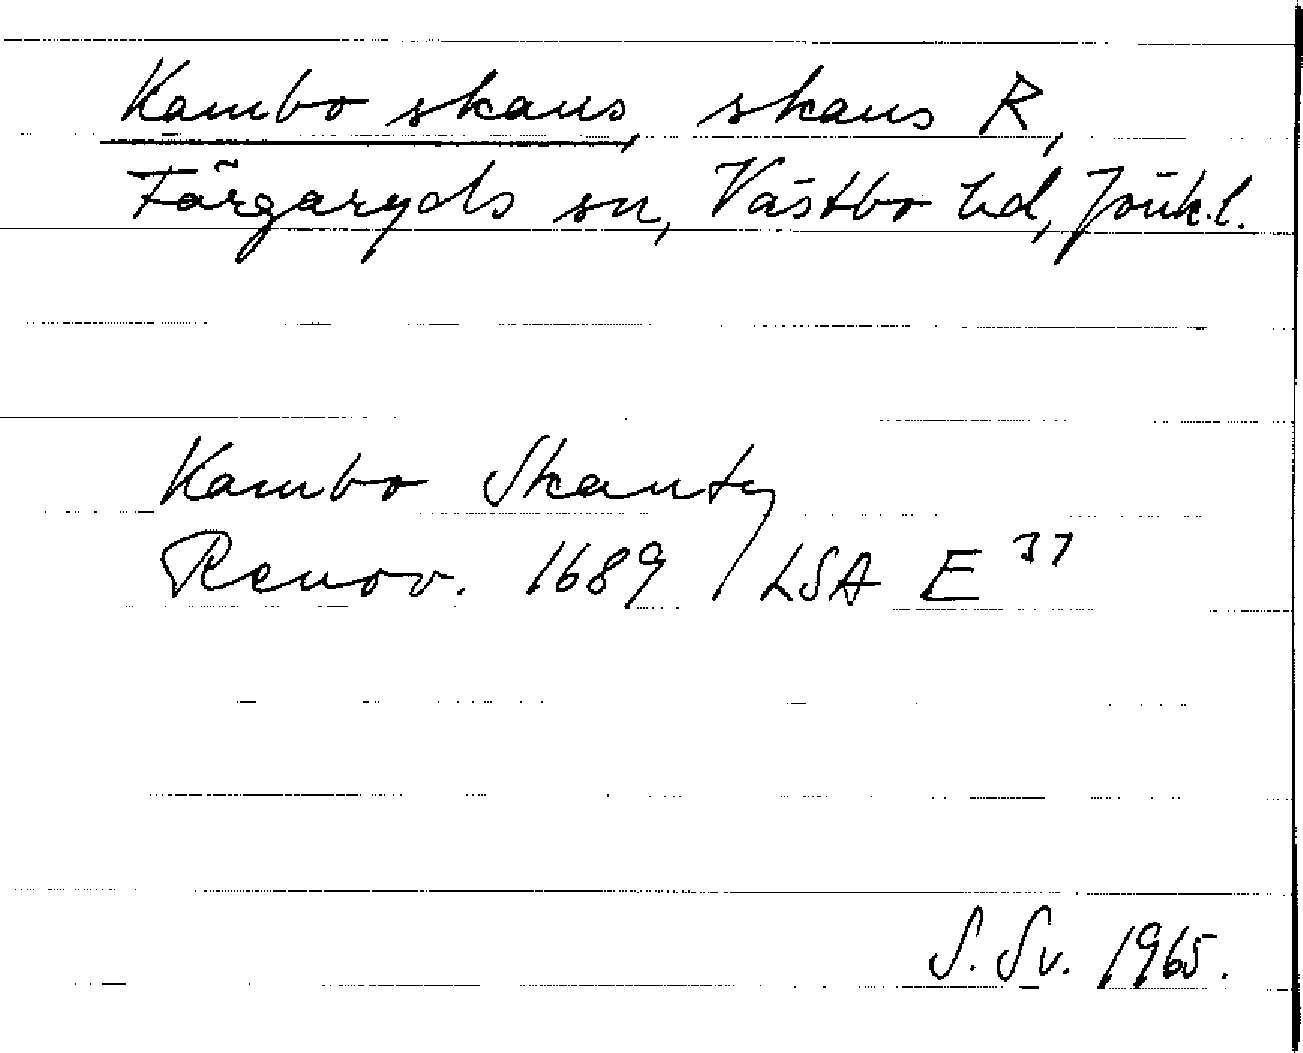 Kambo skans, skans R,
Färgaryds sn, Västbo hd, Jönk.l.
Kambo Skantz
Renov. 1689 LSA E 37
S. Sv. 1965.